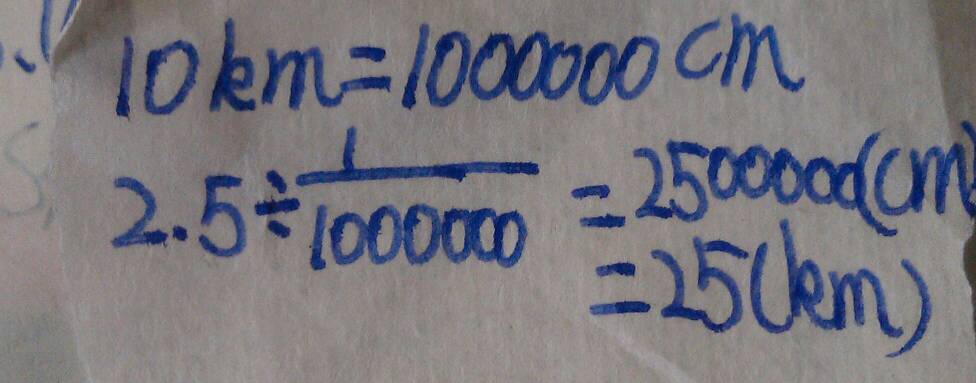 10km=1000000cm
2.5÷1/1000000=2500000(cm)
=25(km)